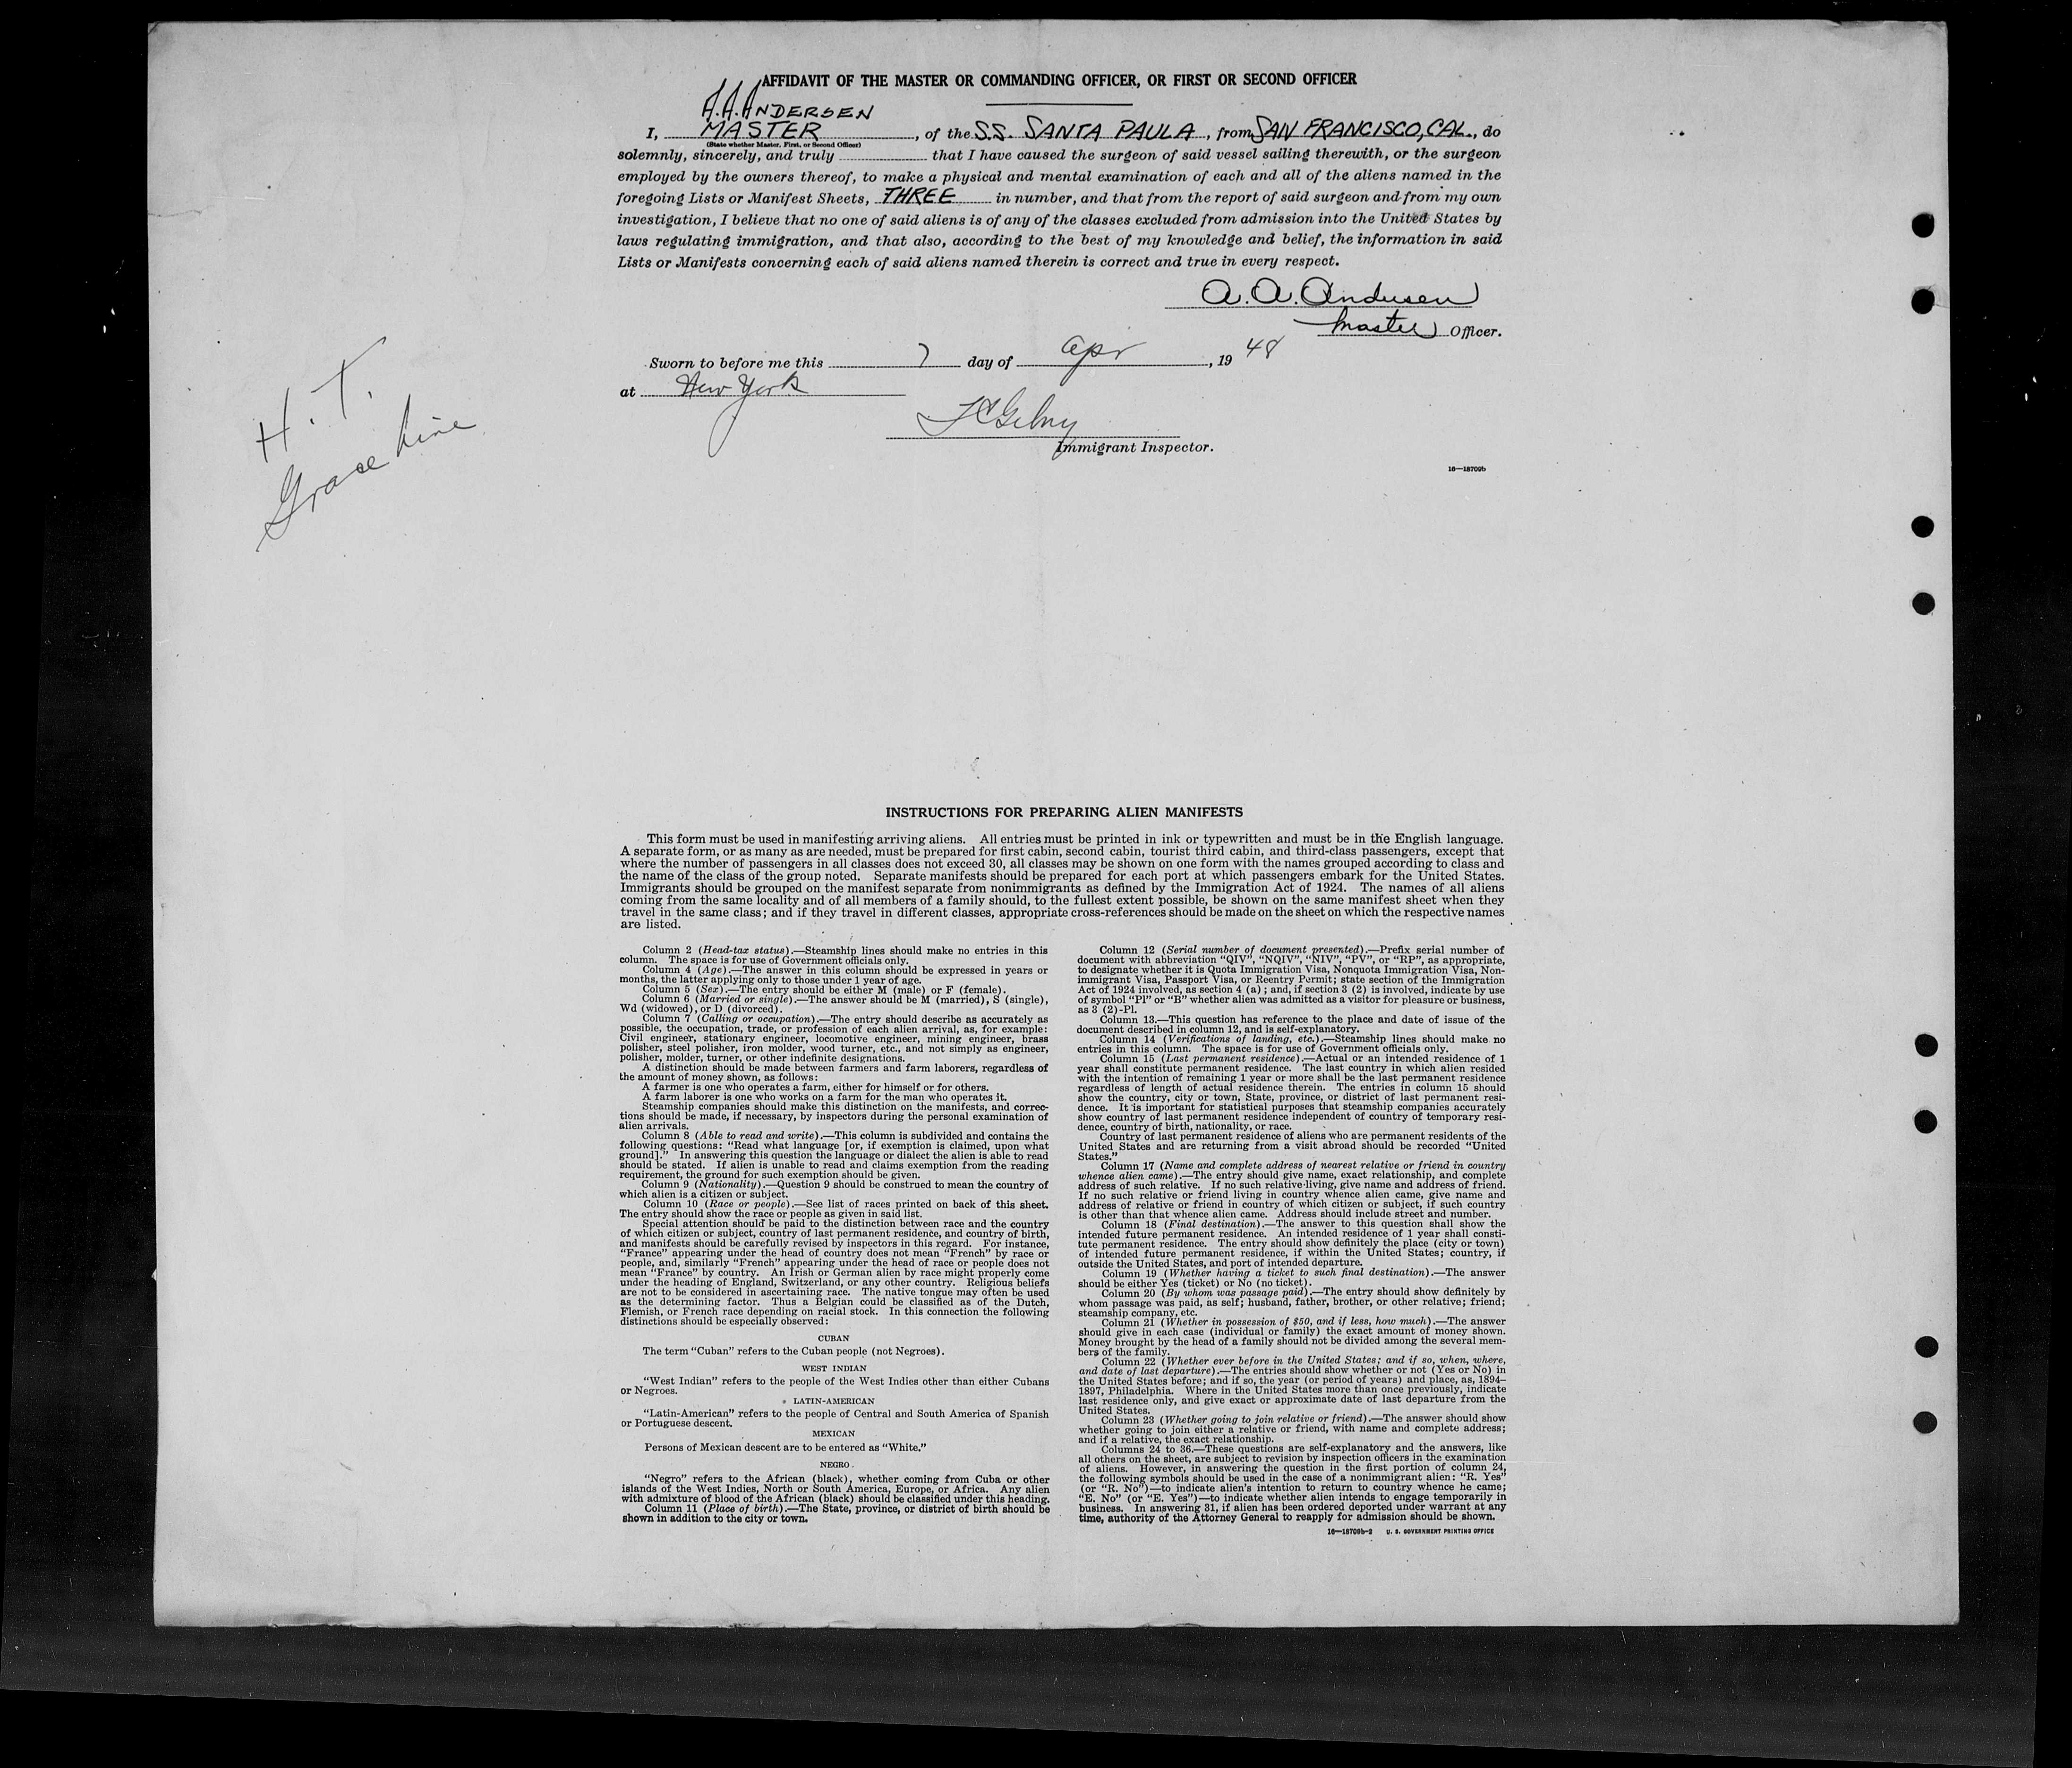 AFFIDAVIT OF THE MASTER OR COMMANDING OFFICER, OR FIRST OR SECOND OFFICER
A.A. ANDERSEN
I, MASTER, of the S.S. SANTA PAULA, from SAN FRANCISCO, CAL., do
(State whether Master, First, or Second Officer)
solemnly, sincerely, and truly that I have caused the surgeon of said vessel sailing therewith, or the surgeon
employed by the owners thereof, to make a physical and mental examination of each and all of the aliens named in the
foregoing Lists or Manifest Sheets, THREE in number, and that from the report of said surgeon and from my own
investigation, I believe that no one of said aliens is of any of the classes excluded from admission into the United States by
laws regulating immigration, and that also, according to the best of my knowledge and belief, the information in said
Lists or Manifests concerning each of said aliens named therein is correct and true in every respect.
A. A. Andersen
Master Officer.
Sworn to before me this 7 day of Apr, 19 48
at New York
Immigrant Inspector.
16—18709b
H. T.
Grace Line
INSTRUCTIONS FOR PREPARING ALIEN MANIFESTS
This form must be used in manifesting arriving aliens. All entries must be printed in ink or typewritten and must be in the English language.
A separate form, or as many as are needed, must be prepared for first cabin, second cabin, tourist third cabin, and third-class passengers, except that
where the number of passengers in all classes does not exceed 30, all classes may be shown on one form with the names grouped according to class and
the name of the class of the group noted. Separate manifests should be prepared for each port at which passengers embark for the United States.
Immigrants should be grouped on the manifest separate from nonimmigrants as defined by the Immigration Act of 1924. The names of all aliens
coming from the same locality and of all members of a family should, to the fullest extent possible, be shown on the same manifest sheet when they
travel in the same class; and if they travel in different classes, appropriate cross-references should be made on the sheet on which the respective names
are listed.
Column 2 (Head-tax status).—Steamship lines should make no entries in this
column. The space is for use of Government officials only.
Column 4 (Age).—The answer in this column should be expressed in years or
months, the latter applying only to those under 1 year of age.
Column 5 (Sex).—The entry should be either M (male) or F (female).
Column 6 (Married or single).—The answer should be M (married), S (single),
Wd (widowed), or D (divorced).
Column 7 (Calling or occupation).—The entry should describe as accurately as
possible, the occupation, trade, or profession of each alien arrival, as, for example:
Civil engineer, stationary engineer, locomotive engineer, mining engineer, brass
polisher, steel polisher, iron molder, wood turner, etc., and not simply as engineer,
polisher, molder, turner, or other indefinite designations.
A distinction should be made between farmers and farm laborers, regardless of
the amount of money shown, as follows:
A farmer is one who operates a farm, either for himself or for others.
A farm laborer is one who works on a farm for the man who operates it.
Steamship companies should make this distinction on the manifests, and correc-
tions should be made, if necessary, by inspectors during the personal examination of
alien arrivals.
Column 8 (Able to read and write).—This column is subdivided and contains the
following questions: "Read what language [or, if exemption is claimed, upon what
ground]." In answering this question the language or dialect the alien is able to read
should be stated. If alien is unable to read and claims exemption from the reading
requirement, the ground for such exemption should be given.
Column 9 (Nationality).—Question 9 should be construed to mean the country of
which alien is a citizen or subject.
Column 10 (Race or people).—See list of races printed on back of this sheet.
The entry should show the race or people as given in said list.
Special attention should be paid to the distinction between race and the country
of which citizen or subject, country of last permanent residence, and country of birth,
and manifests should be carefully revised by inspectors in this regard. For instance,
"France" appearing under the head of country does not mean "French" by race or
people, and, similarly "French" appearing under the head of race or people does not
mean "France" by country. An Irish or German alien by race might properly come
under the heading of England, Switzerland, or any other country. Religious beliefs
are not to be considered in ascertaining race. The native tongue may often be used
as the determining factor. Thus a Belgian could be classified as of the Dutch,
Flemish, or French race depending on racial stock. In this connection the following
distinctions should be especially observed:
CUBAN
The term "Cuban" refers to the Cuban people (not Negroes).
WEST INDIAN
"West Indian" refers to the people of the West Indies other than either Cubans
or Negroes.
LATIN-AMERICAN
"Latin-American" refers to the people of Central and South America of Spanish
or Portuguese descent.
MEXICAN
Persons of Mexican descent are to be entered as "White."
NEGRO
"Negro" refers to the African (black), whether coming from Cuba or other
islands of the West Indies, North or South America, Europe, or Africa. Any alien
with admixture of blood of the African (black) should be classified under this heading.
Column 11 (Place of birth).—The State, province, or district of birth should be
shown in addition to the city or town.
Column 12 (Serial number of document presented).—Prefix serial number of
document with abbreviation "QIV", "NQIV", "NIV", "PV", or "RP", as appropriate,
to designate whether it is Quota Immigration Visa, Nonquota Immigration Visa, Non-
immigrant Visa, Passport Visa, or Reentry Permit; state section of the Immigration
Act of 1924 involved, as section 4 (a); and, if section 3 (2) is involved, indicate by use
of symbol "Pl" or "B" whether alien was admitted as a visitor for pleasure or business,
as 3 (2)-Pl.
Column 13.—This question has reference to the place and date of issue of the
document described in column 12, and is self-explanatory.
Column 14 (Verifications of landing, etc.).—Steamship lines should make no
entries in this column. The space is for use of Government officials only.
Column 15 (Last permanent residence).—Actual or an intended residence of 1
year shall constitute permanent residence. The last country in which alien resided
with the intention of remaining 1 year or more shall be the last permanent residence
regardless of length of actual residence therein. The entries in column 15 should
show the country, city or town, State, province, or district of last permanent resi-
dence. It is important for statistical purposes that steamship companies accurately
show country of last permanent residence independent of country of temporary resi-
dence, country of birth, nationality, or race.
Country of last permanent residence of aliens who are permanent residents of the
United States and are returning from a visit abroad should be recorded "United
States."
Column 17 (Name and complete address of nearest relative or friend in country
whence alien came).—The entry should give name, exact relationship, and complete
address of such relative. If no such relative living, give name and address of friend.
If no such relative or friend living in country whence alien came, give name and
address of relative or friend in country of which citizen or subject, if such country
is other than that whence alien came. Address should include street and number.
Column 18 (Final destination).—The answer to this question shall show the
intended future permanent residence. An intended residence of 1 year shall consti-
tute permanent residence. The entry should show definitely the place (city or town)
of intended future permanent residence, if within the United States; country, if
outside the United States, and port of intended departure.
Column 19 (Whether having a ticket to such final destination).—The answer
should be either Yes (ticket) or No (no ticket).
Column 20 (By whom was passage paid).—The entry should show definitely by
whom passage was paid, as self; husband, father, brother, or other relative; friend;
steamship company, etc.
Column 21 (Whether in possession of $50, and if less, how much).—The answer
should give in each case (individual or family) the exact amount of money shown.
Money brought by the head of a family should not be divided among the several mem-
bers of the family.
Column 22 (Whether ever before in the United States; and if so, when, where,
and date of last departure).—The entries should show whether or not (Yes or No) in
the United States before; and if so, the year (or period of years) and place, as, 1894–
1897, Philadelphia. Where in the United States more than once previously, indicate
last residence only, and give exact or approximate date of last departure from the
United States.
Column 23 (Whether going to join relative or friend).—The answer should show
whether going to join either a relative or friend, with name and complete address;
and if a relative, the exact relationship.
Columns 24 to 36.—These questions are self-explanatory and the answers, like
all others on the sheet, are subject to revision by inspection officers in the examination
of aliens. However, in answering the question in the first portion of column 24,
the following symbols should be used in the case of a nonimmigrant alien: "R. Yes"
(or "R. No")—to indicate alien's intention to return to country whence he came;
"E. No" (or "E. Yes")—to indicate whether alien intends to engage temporarily in
business. In answering 31, if alien has been ordered deported under warrant at any
time, authority of the Attorney General to reapply for admission should be shown.
16—18709b-2 U. S. GOVERNMENT PRINTING OFFICE